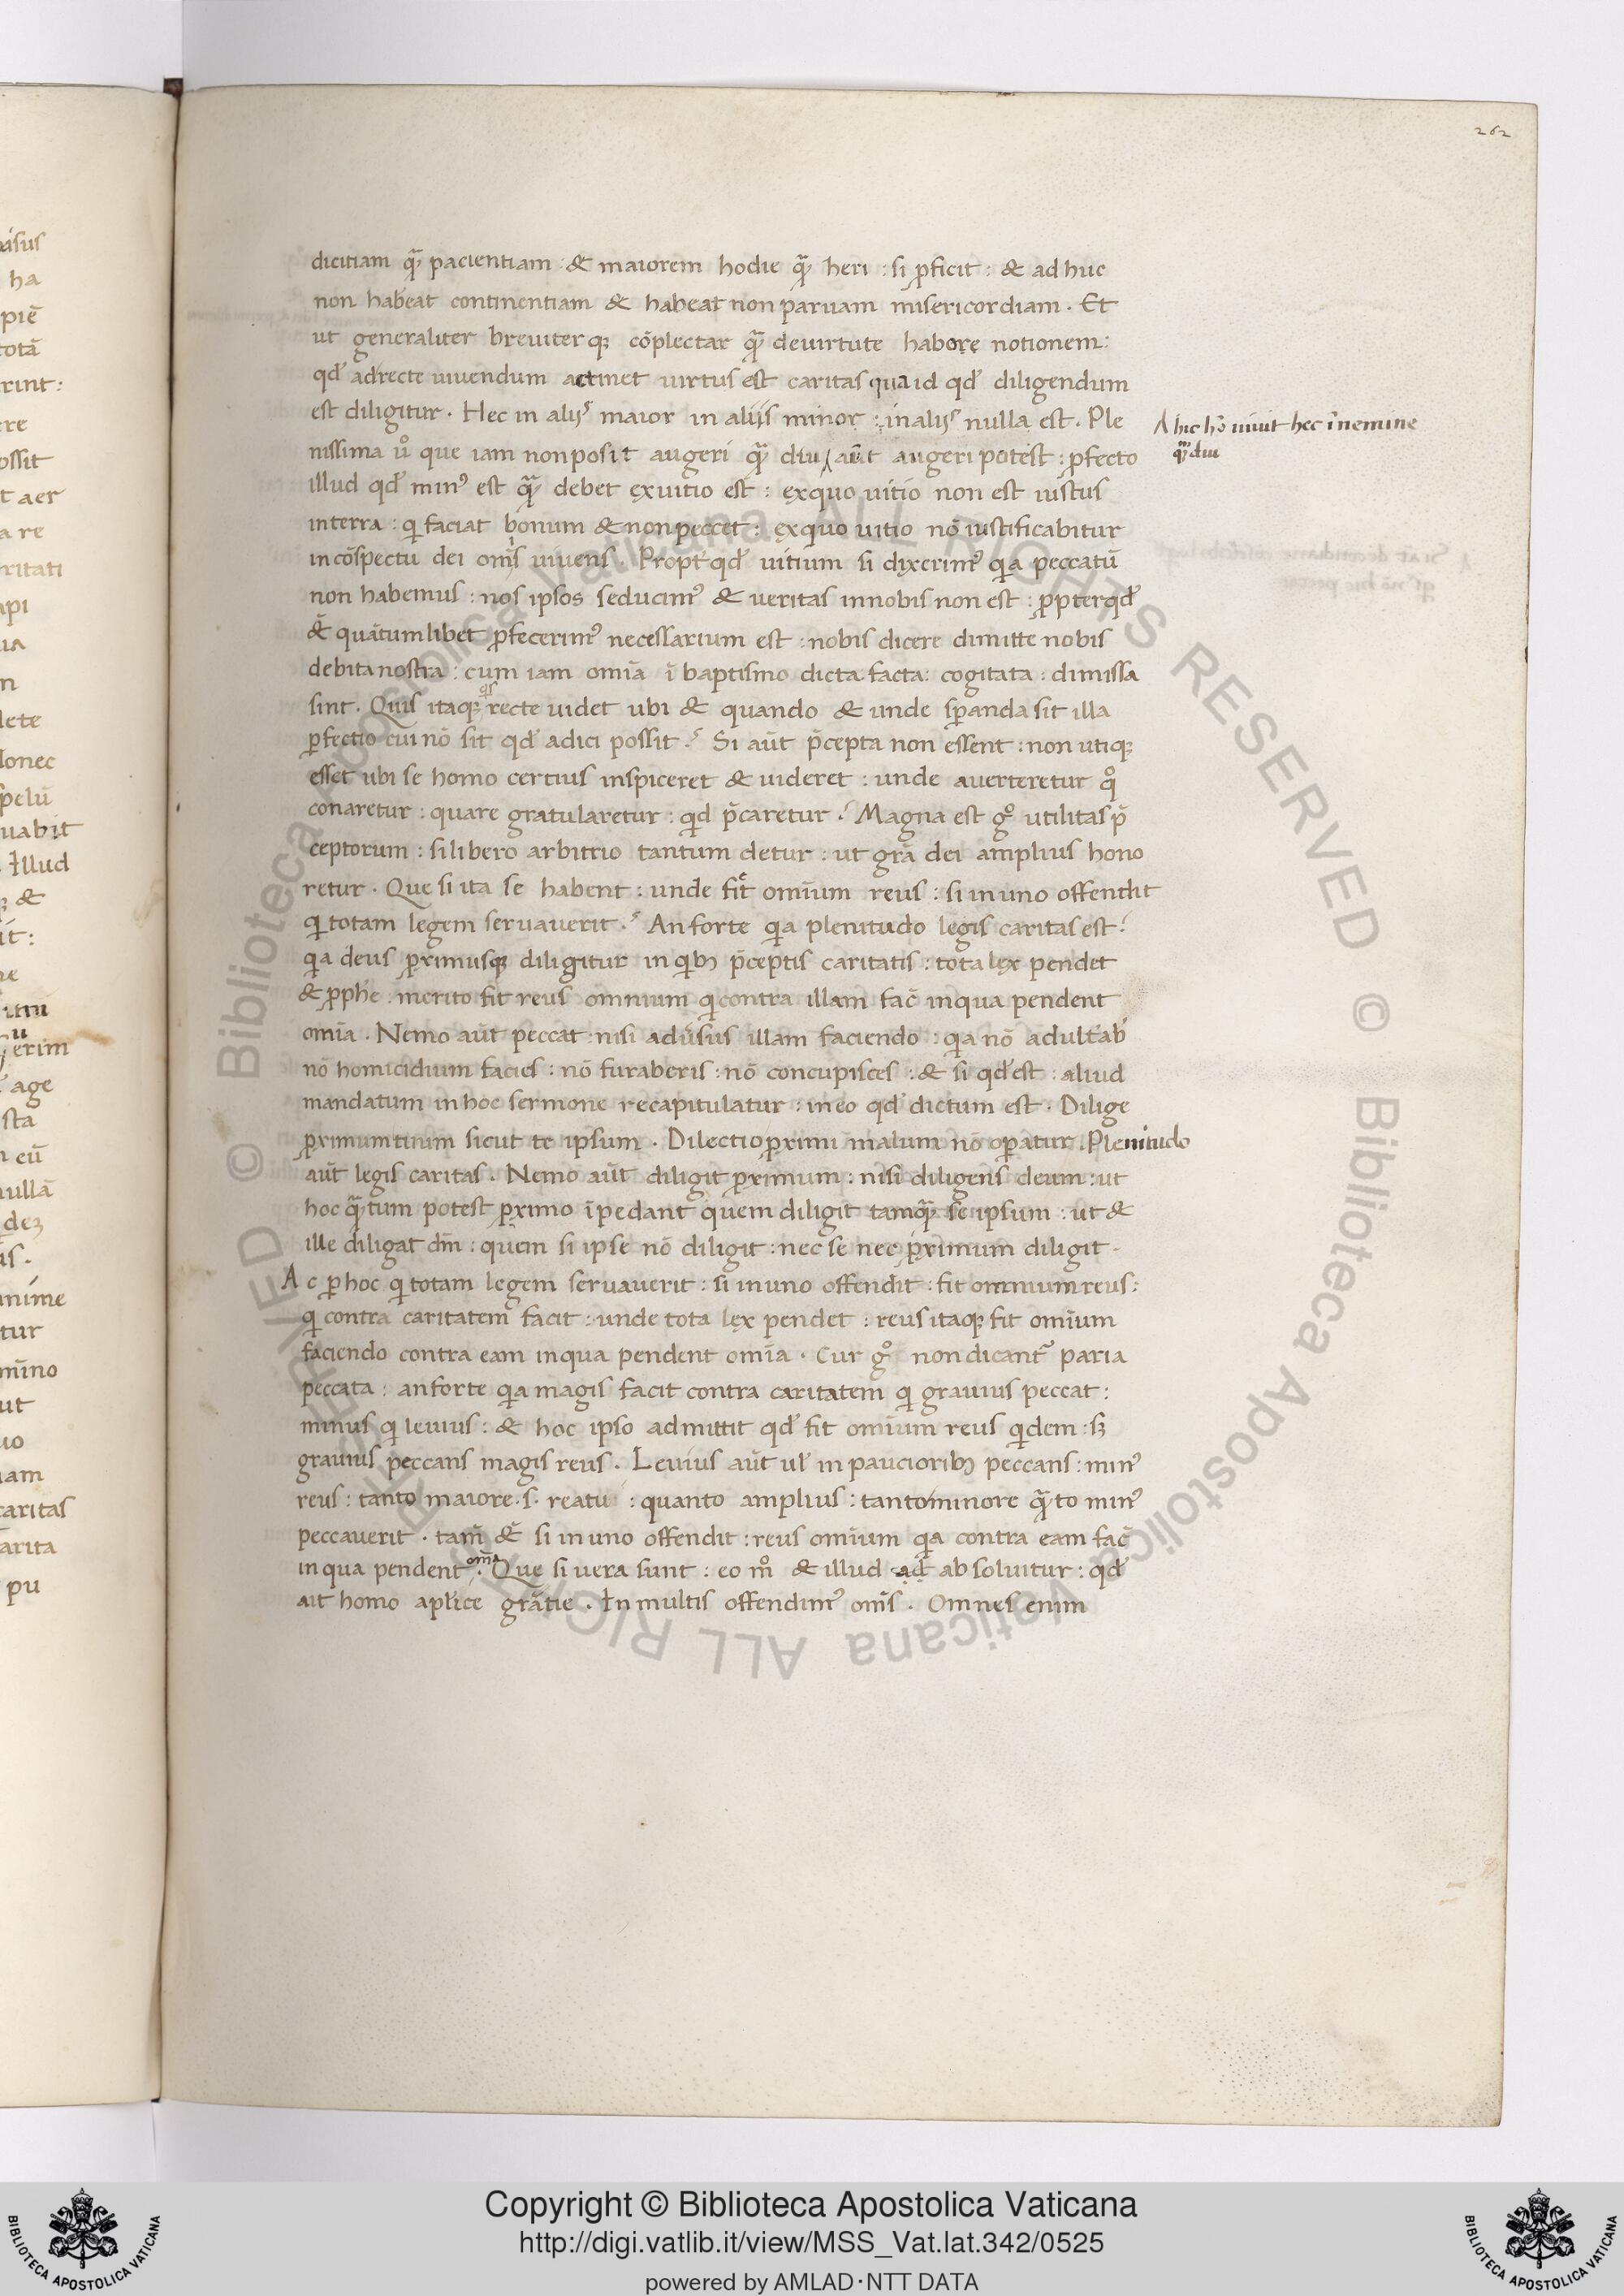 262
dicitiam qᷓ pacientiam · & maiorem hodie qᷓ heri : si ꝓficit : & ad huc
non habeat continentiam & habeat non paruam misericordiam · Et
ut generaliter breuiter qꝫ cōplectar qᷓ deuirtute habore notionem :
qđ adrecte uiuendum attinet uirtus est caritas qua id qđ diligendum
est diligitur · Hec in alijs maior in aliis minor : in alijs nulla est · Ple
nissima ů que iam non posit augeri qᷓ diu aūt augeri potest : ꝓfecto
hic hō uiuit hec ī nemine
qᷓ diu
illud qđ minꝰ est qᷓ debet exuitio est : exquo uitio non est iustus
interra : qi faciat bonum & non peccet : exquo uitio nō iustificabitur
incōspectu dei om̄is uiuens · Propt̄ qđ uitium si dixerimꝰ qia peccatū
non habemus : nos ipsos seducimꝰ & ueritas innobis non est : ꝓpterqđ
&̄ quātumlibet ꝓfecerimꝰ necessarium est : nobis dicere dimitte nobis
debita nostra : cum iam omīa ī baptismo dicta facta : cogitata : dimissa
sint · Quis itaqꝫ recte uidet ubi & quando & unde sꝑanda sit illa
ꝑfectio cui nō sit qđ adici possit ? Si aūt p̄cepta non essent : non utiqꝫ
esset ubi se homo certius inspiceret & uideret : unde auerteretur qo
conaretur : quare gratularetur : qid p̄caretur ? Magna est go utilitas p̄
ceptorum : si libero arbitrio tantum detur : ut grā dei amplius hono
retur · Que si ita se habent : unde fit omīum reus : si in uno offendit
qi totam legem seruauerit ? An forte qia plenitudo legis caritas est ?
qia deus ꝓximusqꝫ diligitur in qibꝫ p̄ceptis caritatis : tota lex pendet
& ꝓphe · merito fit reus omnium qi contra illam fac̄ inqua pendent
omīa · Nemo aūt peccat nisi adusus illam faciendo : qia nō adultab̄
nō homicidium facies : nō furaberis : nō concupisces : & si qđ est : aliud
mandatum in hoc sermone recapitulatur : in eo qđ dictum est · Dilige
ꝓximum tuum sicut te ipsum · Dilectio ꝓximi malum nō oꝑatur · Plenitudo
aūt legis caritas · Nemo aūt diligit ꝓximum : nisi diligens deum : ut
hoc qᷓtum potest ꝓximo īpedant quem diligit tamqᷓ se ipsum : ut &
ille diligat dm̄ : quem si ipse nō diligit : nec se nec ꝓximum diligit ·
Ac ꝑ hoc qi totam legem seruauerit : si in uno offendit : fit omnium reus :
qi contra caritatem facit : unde tota lex pendet : reus itaqꝫ fit omīum
faciendo contra eam inqua pendent omīa · Cur go non dicant᷑ paria
peccata : an forte qia magis facit contra caritatem qi grauius peccat :
minus qi leuius : & hoc ipso admittit qđ fit omīum reus qidem : sꝫ
grauius peccans magis reus · Leuius aūt ul̄ in paucioribꝫ peccans : minꝰ
reus : tanto maiore · s · reatu : quanto amplius : tanto minore qᷓto minꝰ
peccauerit · tam̄ &̄ si in uno offendit : reus omīum qia contra eam fac̄
in qua pendent om̄a · Que si uera sunt : eo mo & illud ad absoluitur : qđ
ait homo aplice gr̄atie · In multis offendimꝰ om̄s · Omnes enim
Copyright © Biblioteca Apostolica Vaticana
http://digi.vatlib.it/view/MSS_Vat.lat.342/0525
powered by AMLAD·NTT DATA